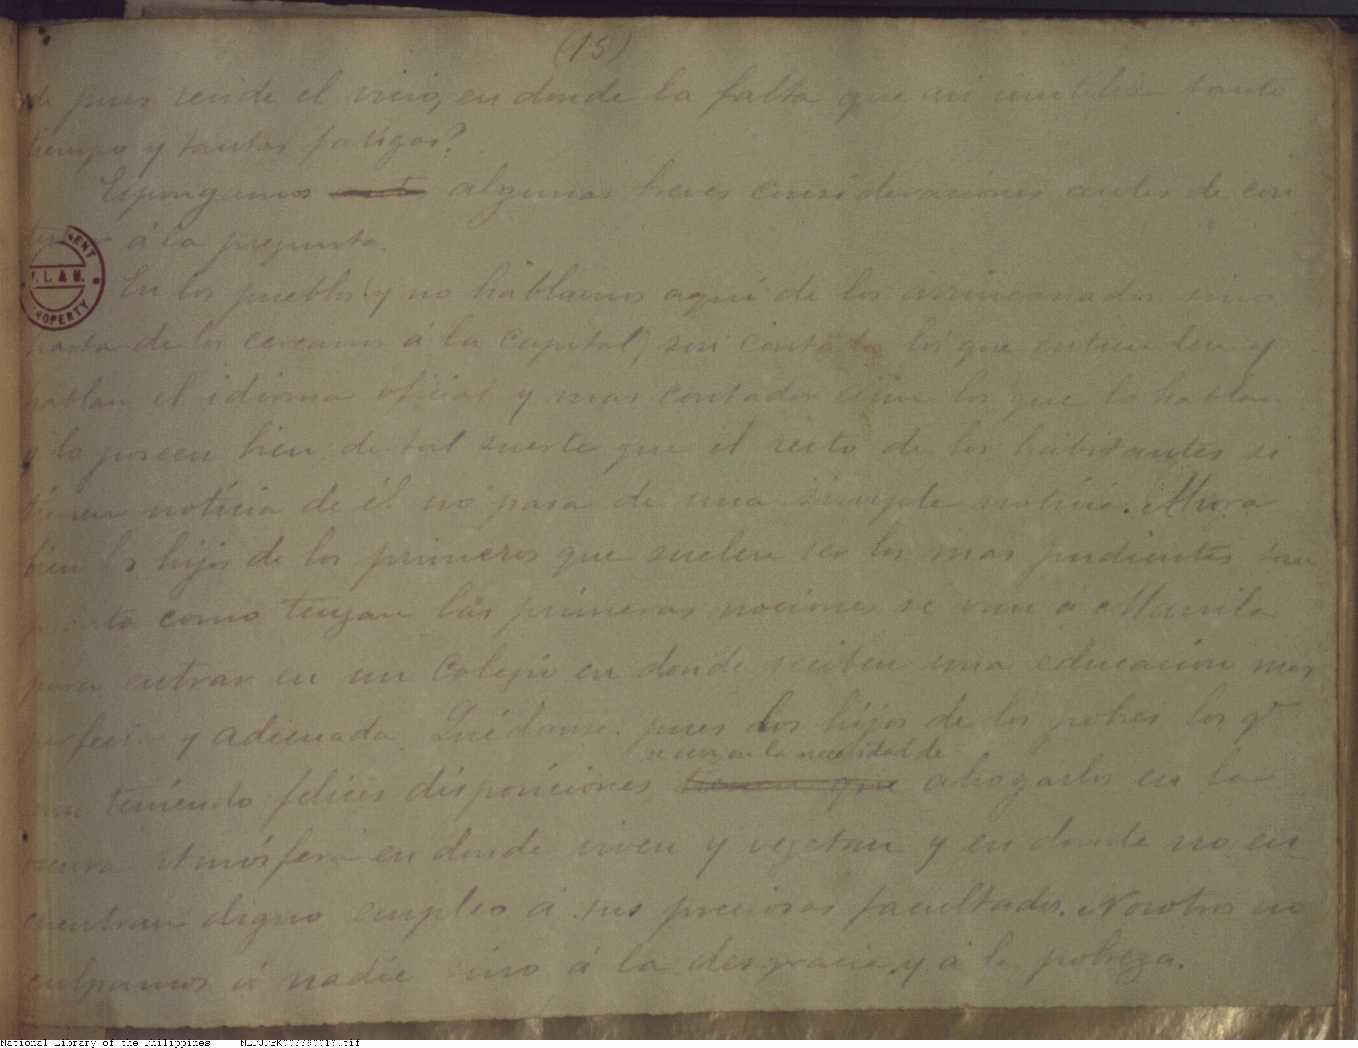 (15)
de pues reside el vicio, en donde la falta que asi inutiliza tanto
tiempo y tantas fatigas?
Espongamos algunas breves consideraciones antes de con
á la pregunta.
En los pueblos (y no hablamos aquí de los arrinconados sino
hasta de los cercanos á la Capital) son contados los que entienden y
hablan el idioma oficial y mas contados aun los que lo hablan
y lo poseen bien; de tal suerte que el resto de los habitantes si
tienen noticia de él no pasa de una simple noticia. Ahora
bien los hijos de los primeros que suelen ser los mas pudientes tan
pronto como tengan las primeras nociones se van á Manila
para entrar en un Colegio en donde reciben una educacion mas
perfecta y adecuada. Quédanse pues los hijos de los pobres los qe
se ven en la necesidad de
aun teniendo felices disposiciones tienen que ahogarlos en la
oscura atmósfera en donde viven y vegetan y en donde no en-
cuentran digno empleo á sus preciosas facultades. Nosotros no
culpamos á nadie sino á la desgracia y á la pobreza.
P. L. & M.
PROPERTY
National Library of the Philippines